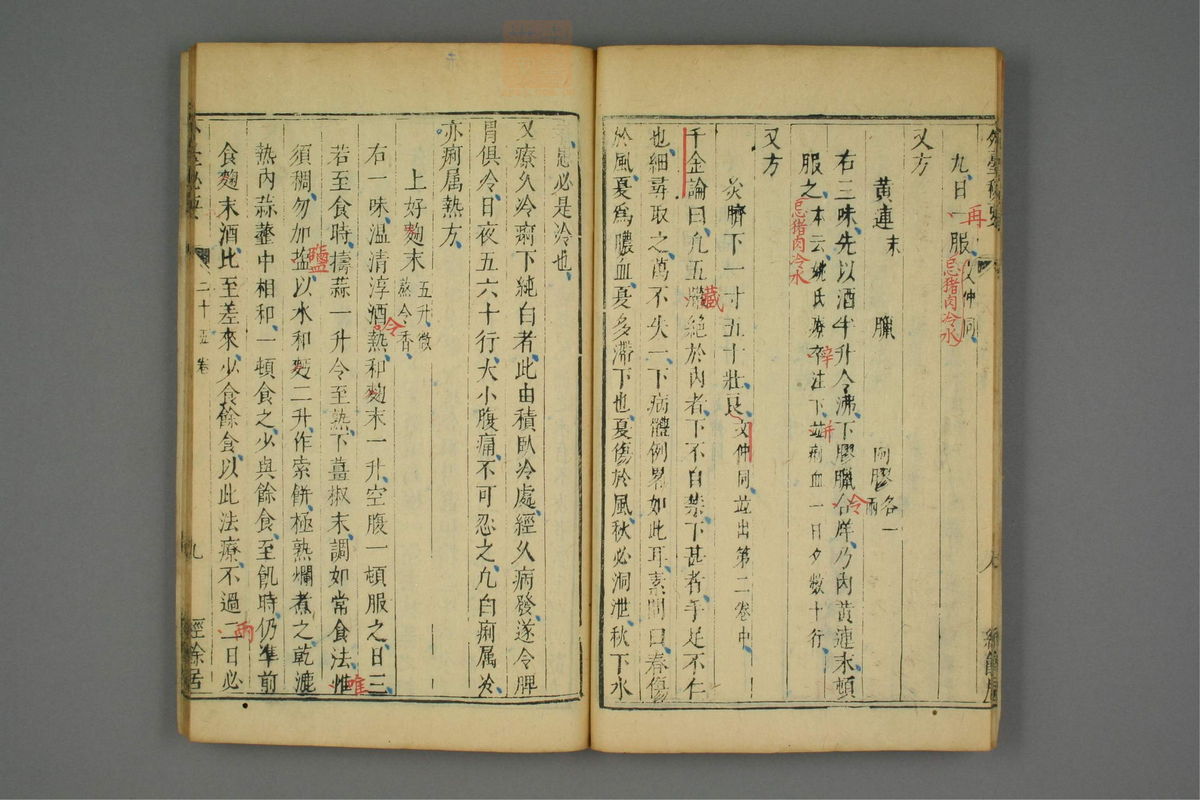 外臺秘要
九日服文仲同
再
忌猪肉冷水
又方
黄連末 臘 阿膠各一兩
右三味先以酒半升令沸下膠臘合烊乃内黄連末頓
令
服之本云姚氏療卒注下並痢血一日夕數十行
忌猪肉冷水
辛
并
又方
灸臍下一寸五十壯良文仲同並出第二卷中
千金論曰凡五臟絶於内者下不自禁下甚者手足不仁
藏
也細尋取之萬不失一下病體例畧如此耳素問曰春傷
於風夏爲膿血夏多滯下也夏傷於風秋必洞泄秋下水
者患必是冷也
又療久冷痢下純白者此由積臥冷處經久病發遂令脾
胃俱冷日夜五六十行大小腹痛不可忍之凡白痢属冷
赤痢属熱方
上好麴末五升微熬令香
右一味温清淳酒熱和麴末一升空腹一頓服之日三
令
若至食時擣蒜一升令至熟下薑椒末調如常食法惟
唯
須稠勿加鹽以水和麪二升作索餅極熟爛煮之乾漉
鹽
熱内蒜虀中相和一頓食之少與餘食至飢時仍準前
食麴末酒比至差來少食餘食以此法療不過二日必
兩
外臺秘要 二十五卷 九 經餘居